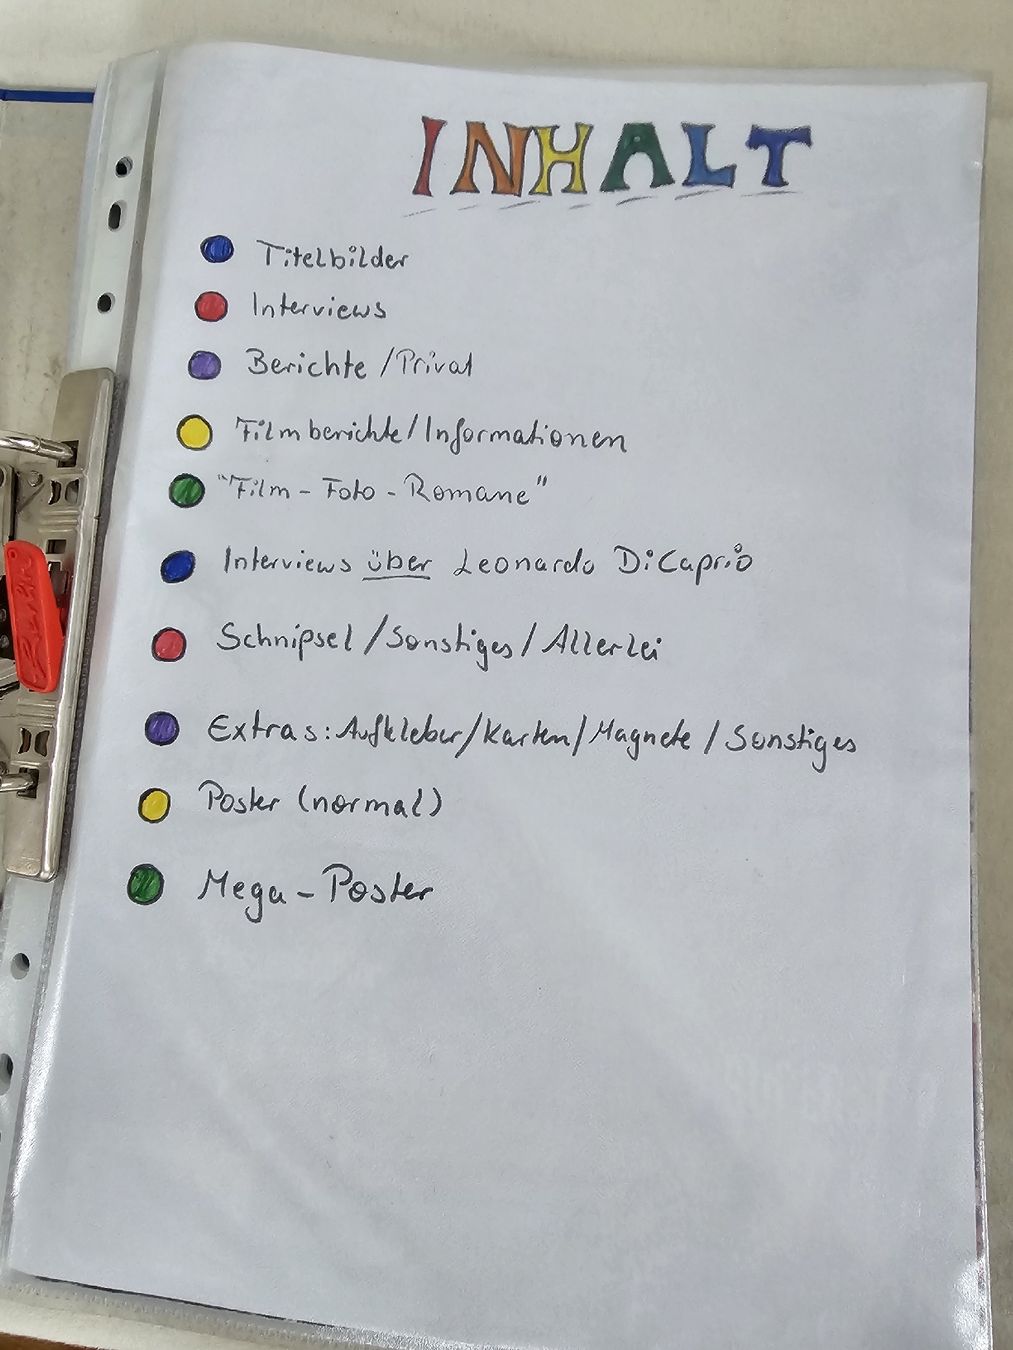 INHALT
Titelbilder
Interviews
Berichte / Privat
Filmberichte / Informationen
"Film - Foto - Romane"
Interviews über Leonardo DiCaprio
Schnipsel / Sonstiges / Allerlei
Extras: Aufkleber / Karten / Magnete / Sonstiges
Poster (normal)
Mega - Poster